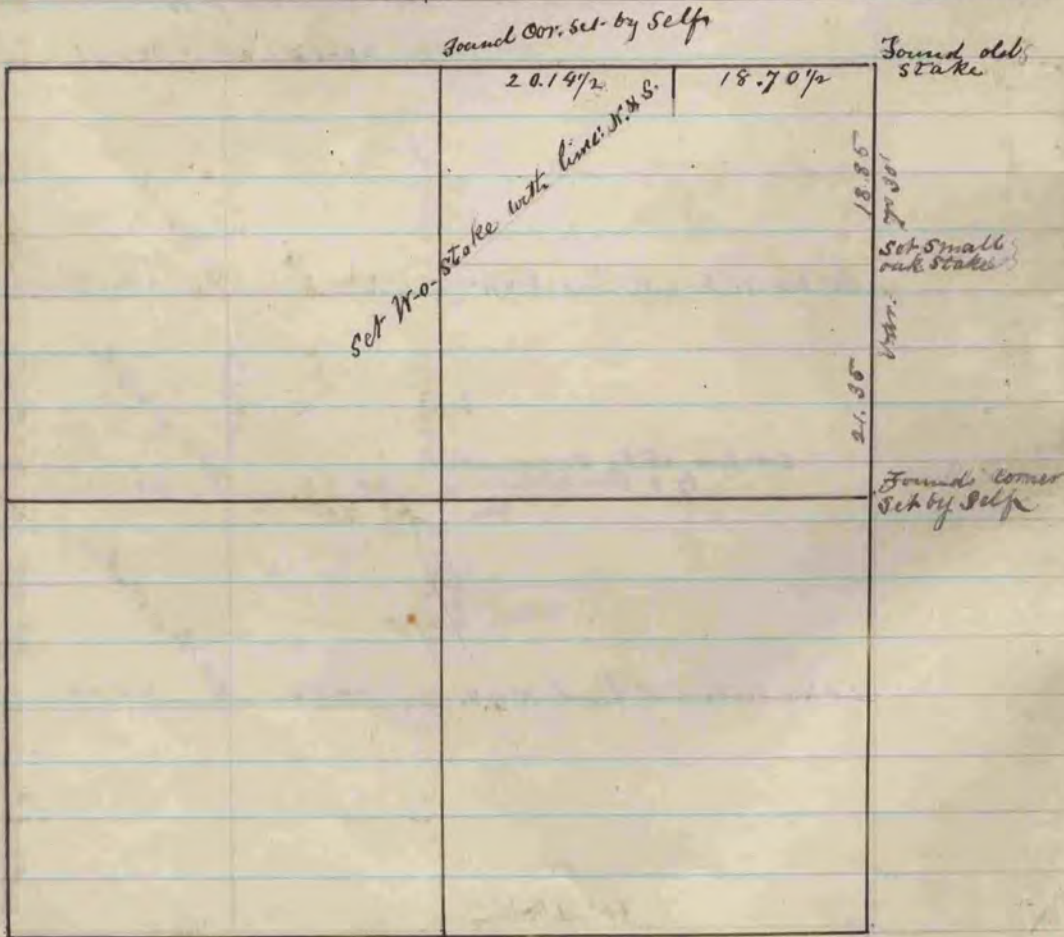 Found Cor. set by Self
Found old
stake
20.14½
18.70½
Set W-o-stake with line N. & S.
18.85
set small
oak stake
21.35
Found corner
set by Self